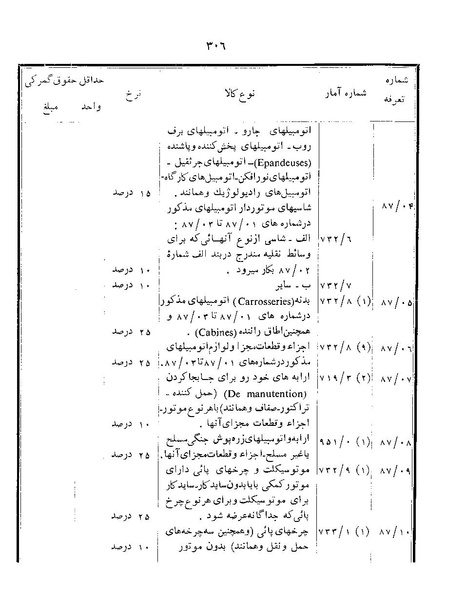 ۳۰۶
شماره تعرفه شماره آمار نوع کالا نرخ حداقل حقوق گمرکی واحد مبلغ
اتومبیلهای جارو ـ اتومبیلهای برف
روب ـ اتومبیلهای پخش‌کننده و پاشنده
(Epandeuses) ـ اتومبیلهای جرثقیل ـ
اتومبیلهای نورافکن ـ اتومبیل‌های کارگاه ـ
اتومبیل‌های رادیولوژیک و همانند. ۱۵ درصد
۸۷/۰۴ شاسیهای موتوردار اتومبیلهای مذکور
درشماره های ۸۷/۰۱ تا ۸۷/۰۳ :
۷۳۲/۶ الف ـ شاسی ازنوع آنهائی که برای
وسائط نقلیه مندرج دربند الف شمارهٔ
۸۷/۰۲ بکار میرود . ۱۰ درصد
۷۳۲/۷ ب ـ سایر ۱۰ درصد
۸۷/۰۵ ۷۳۲/۸ (۱) بدنه (Carrosseries) اتومبیلهای مذکور
درشماره های ۸۷/۰۱ تا ۸۷/۰۳ و
همچنین اطاق راننده (Cabines) . ۲۵ درصد
۸۷/۰۶ ۷۳۲/۸ (۹) اجزاء و قطعات مجزا و لوازم اتومبیلهای
مذکور درشماره‌های ۸۷/۰۱ تا ۸۷/۰۳. ۲۵ درصد
۸۷/۰۷ ۷۱۹/۳ (۲) ارابه های خود رو برای جابجا کردن
(De manutention) (حمل کننده ـ
تراکتور ـ صفاف و همانند) باهر نوع موتور ـ
اجزاء و قطعات مجزای آنها . ۱۰ درصد
۸۷/۰۸ ۹۵۱/۰ (۱) ارابه و اتومبیلهای زره‌پوش جنگی مسلح
یا غیر مسلح ـ اجزاء و قطعات مجزای آنها. ۲۵ درصد
۸۷/۰۹ ۷۳۲/۹ (۱) موتوسیکلت و چرخهای پائی دارای
موتور کمکی با یا بدون ساید کار ـ ساید کار
برای موتوسیکلت و برای هر نوع چرخ
پائی که جداگانه عرضه شود . ۲۵ درصد
۸۷/۱۰ ۷۳۳/۱ (۱) چرخهای پائی (و همچنین سه چرخه‌های
حمل و نقل و همانند) بدون موتور ۱۰ درصد